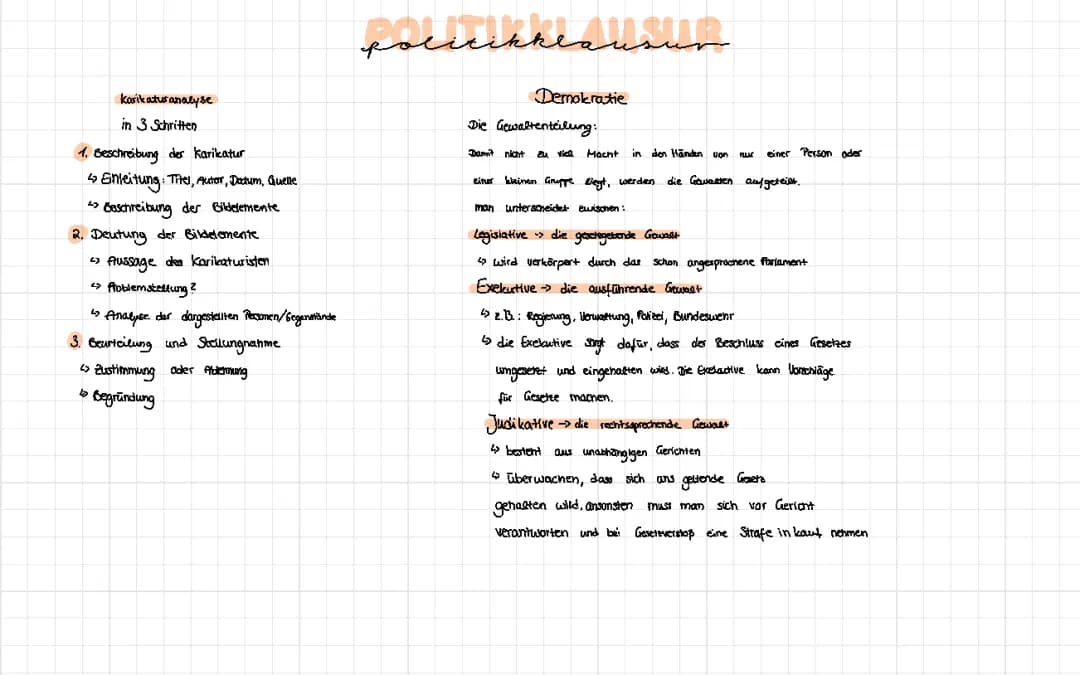 POLITIKKLAUSUR
politikklausur
Karikaturanalyse
in 3 Schritten
1. Beschreibung der Karikatur
↳ Einleitung: Titel, Autor, Datum, Quelle
↳ Beschreibung der Bildelemente
2. Deutung der Bildelemente
↳ Aussage des Karikaturisten
↳ Problemstellung?
↳ Analyse der dargestellten Personen/Gegenstände
3. Beurteilung und Stellungnahme
↳ Zustimmung oder Ablehnung
↳ Begründung
Demokratie
Die Gewaltenteilung:
Damit nicht zu viel Macht in den Händen von nur einer Person oder
einer kleinen Gruppe liegt, werden die Gewalten aufgeteilt.
man unterscheidet zwischen:
Legislative -> die gesetzgebende Gewalt
↳ wird verkörpert durch das schon angesprochene Parlament
Exekutive -> die ausführende Gewalt
↳ z.B.: Regierung, Verwaltung, Polizei, Bundeswehr
↳ die Exekutive sorgt dafür, dass der Beschluss eines Gesetzes
umgesetzt und eingehalten wird. Die Exekutive kann Vorschläge
für Gesetze machen.
Judikative -> die rechtssprechende Gewalt
↳ besteht aus unabhängigen Gerichten
↳ überwachen, dass sich ans geltende Gesetz
gehalten wird, ansonsten muss man sich vor Gericht
verantworten und bei Gesetzverstoß eine Strafe in kauf nehmen